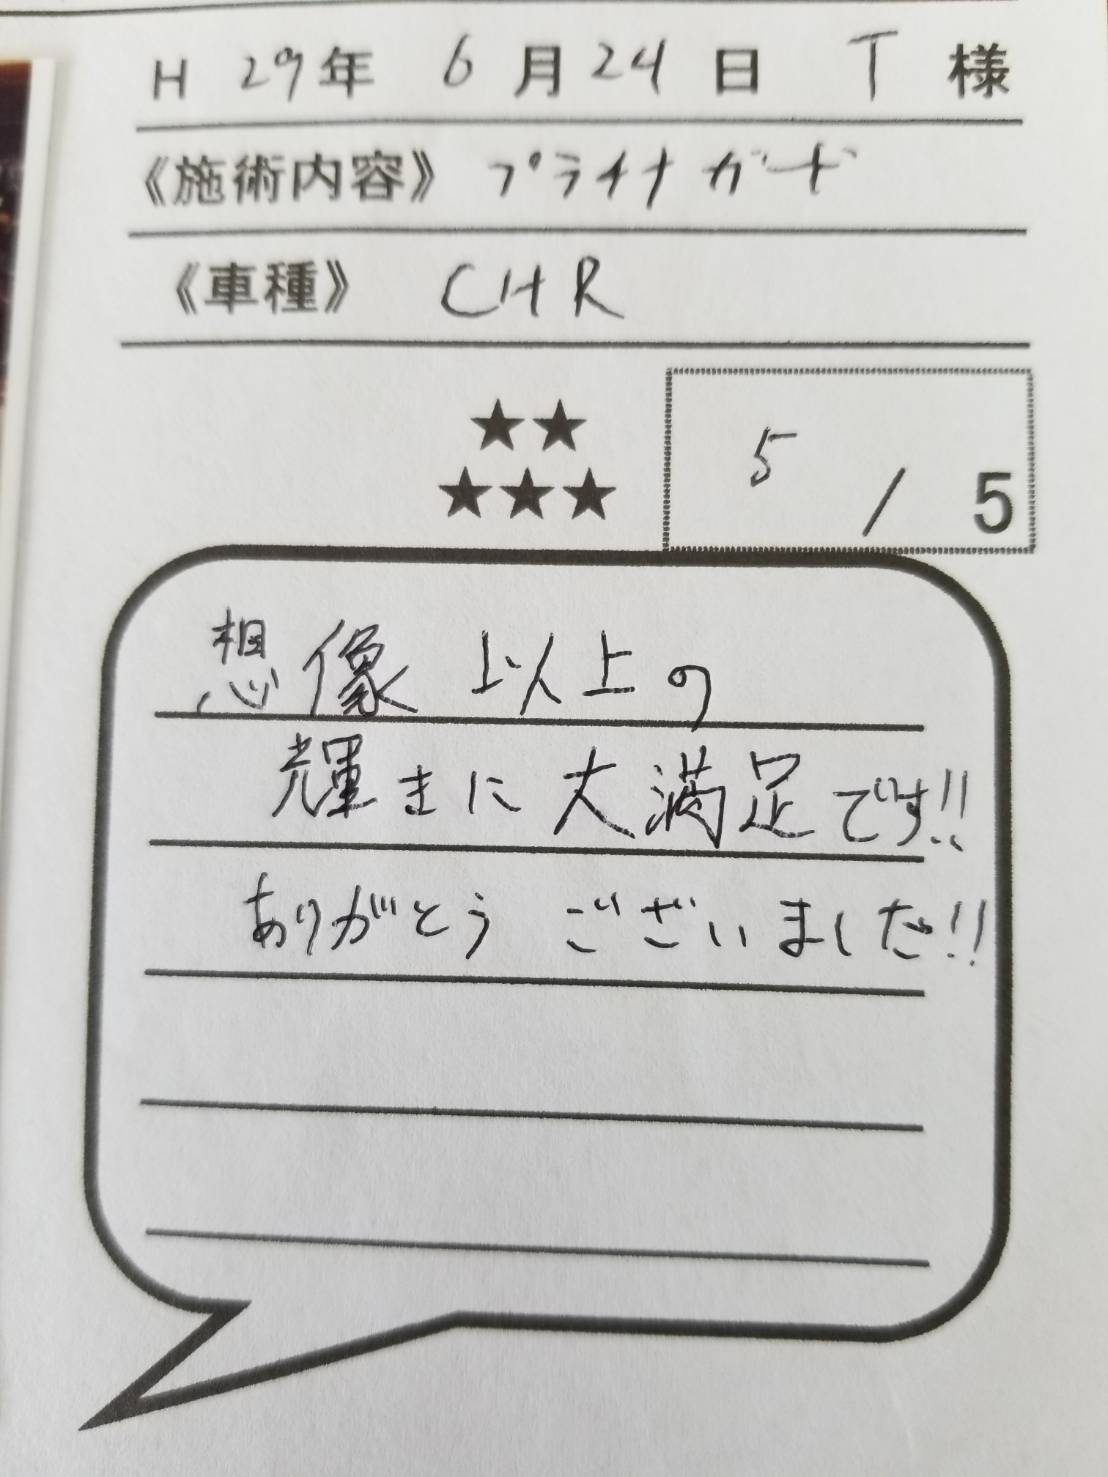 H 29年 6月24日 T様
《施術内容》 プラチナガード
《車種》 CHR
★★
★★★
5 / 5
想像以上の
輝きに大満足です!!
ありがとうございました!!